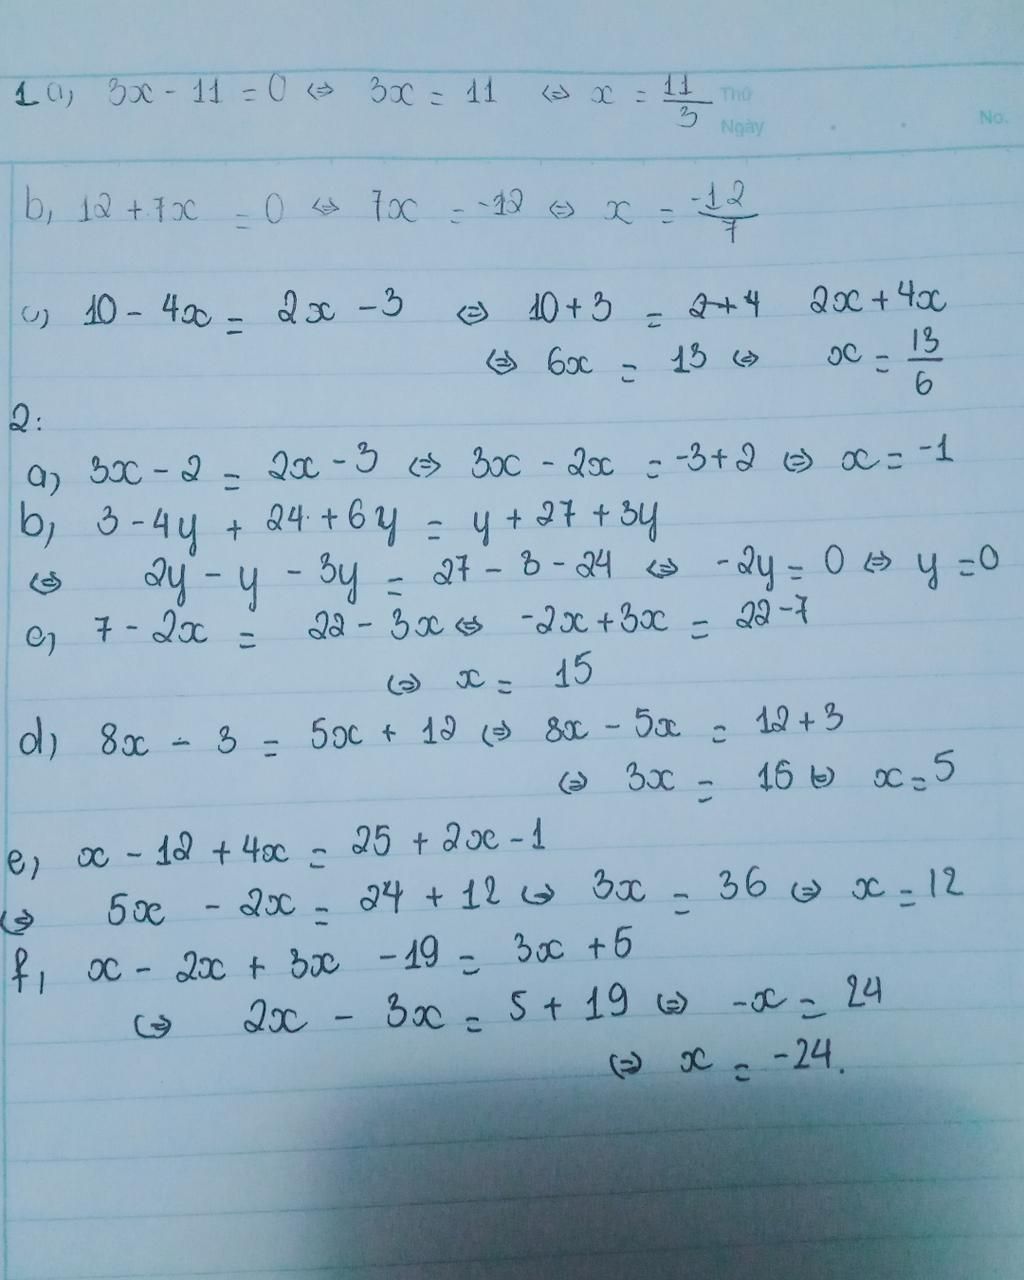 1 a, 3x - 11 = 0 ⇔ 3x = 11 ⇔ x = 11/3
Thứ
Ngày
No.
b, 12 + 7x = 0 ⇔ 7x = -12 ⇔ x = -12/7
c, 10 - 4x = 2x - 3 ⇔ 10 + 3 = 2+4 2x + 4x
⇔ 6x = 13 ⇔ x = 13/6
2:
a, 3x - 2 = 2x - 3 ⇔ 3x - 2x = -3 + 2 ⇔ x = -1
b, 3 - 4y + 24 + 6y = y + 27 + 3y
⇔ 2y - y - 3y = 27 - 3 - 24 ⇔ -2y = 0 ⇔ y = 0
c, 7 - 2x = 22 - 3x ⇔ -2x + 3x = 22 - 7
⇔ x = 15
d, 8x - 3 = 5x + 12 ⇔ 8x - 5x = 12 + 3
⇔ 3x = 15 ⇔ x = 5
e, x - 12 + 4x = 25 + 2x - 1
⇔ 5x - 2x = 24 + 12 ⇔ 3x = 36 ⇔ x = 12
f, x - 2x + 3x - 19 = 3x + 5
⇔ 2x - 3x = 5 + 19 ⇔ -x = 24
⇔ x = -24.